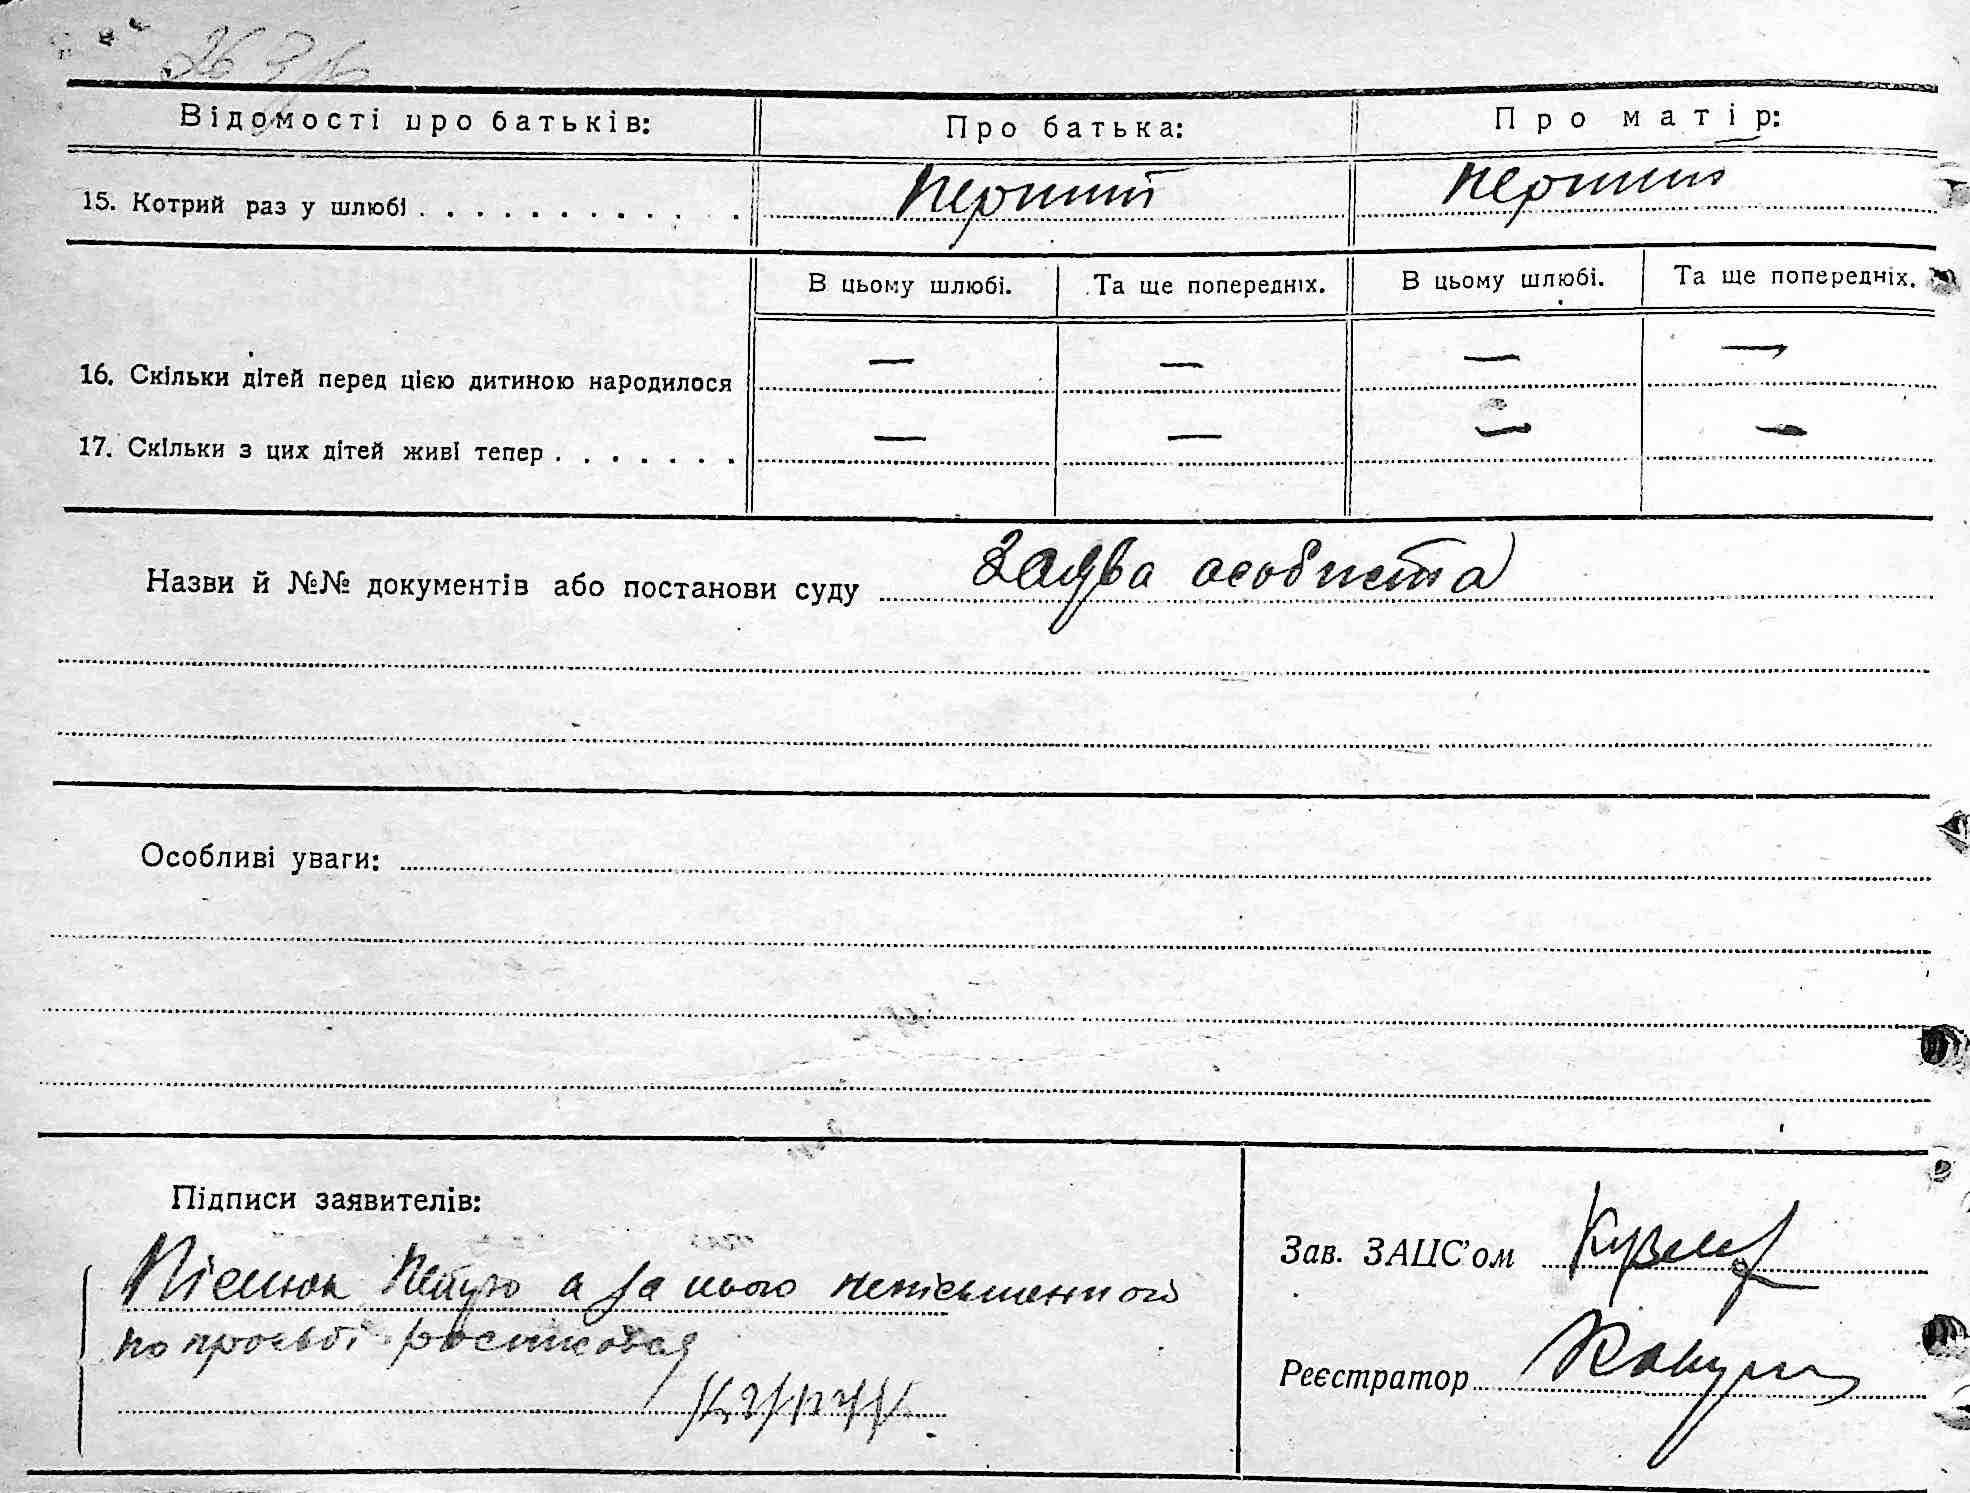 Відомості про батьків: Про батька: Про матір:
15. Котрий раз у шлюбі . . . . . . . . . . . . . перший перший
В цьому шлюбі. Та ще попередніх. В цьому шлюбі. Та ще попередніх.
16. Скільки дітей перед цією дитиною народилося — — — —
17. Скільки з цих дітей живі тепер . . . . . . . — — — —
Назви й №№ документів або постанови суду Заява особиста
Особливі уваги:
Підписи заявителів:
Зав. ЗАЦС'ом
Петро а за нього неписьменного
по просьбі
Реєстратор